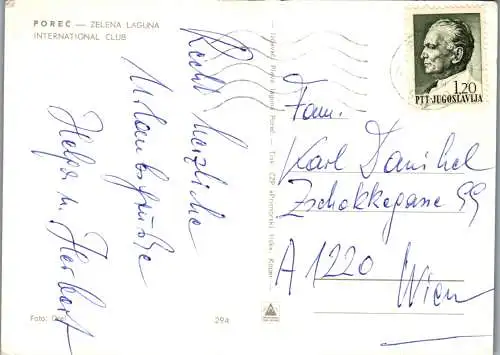 POREČ — ZELENA LAGUNA
INTERNATIONAL CLUB
Recht herzliche
Urlaubsgrüße
Helga u. Herbert
Foto:
294
1.20
PTT-JUGOSLAVIJA
Fam.
Karl Danihel
Zschokkegasse 99
A 1220 Wien